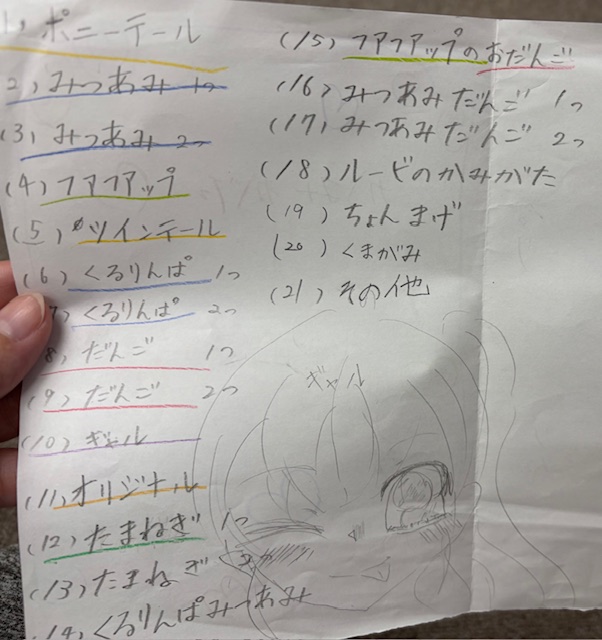 (1) ポニーテール
(2) みつあみ 1つ
(3) みつあみ 2つ
(4) フアフアップ
(5) ツインテール
(6) くるりんぱ 1つ
(7) くるりんぱ 2つ
(8) だんご 1つ
(9) だんご 2つ
(10) ギャル
(11) オリジナル
(12) たまねぎ 1つ
(13) たまねぎ 2つ
(14) くるりんぱみつあみ
(15) フアフアップのおだんご
(16) みつあみだんご 1つ
(17) みつあみだんご 2つ
(18) ルービのかみがた
(19) ちょんまげ
(20) くまがみ
(21) その他
ギャル